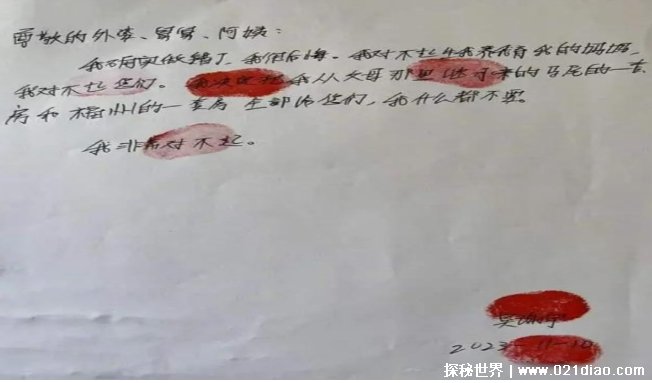 尊敬的外婆、舅舅、阿姨:
我知道我做错了,我很后悔。我对不起生我养育我的妈妈,
我对不起您们。我决定把我从父母那里继承来的马尾的一套
房和福州的一套房全部给您们,我什么都不要。
我非常对不起。
吴谢宇
2023-11-10
探秘世界|www.021diao.com